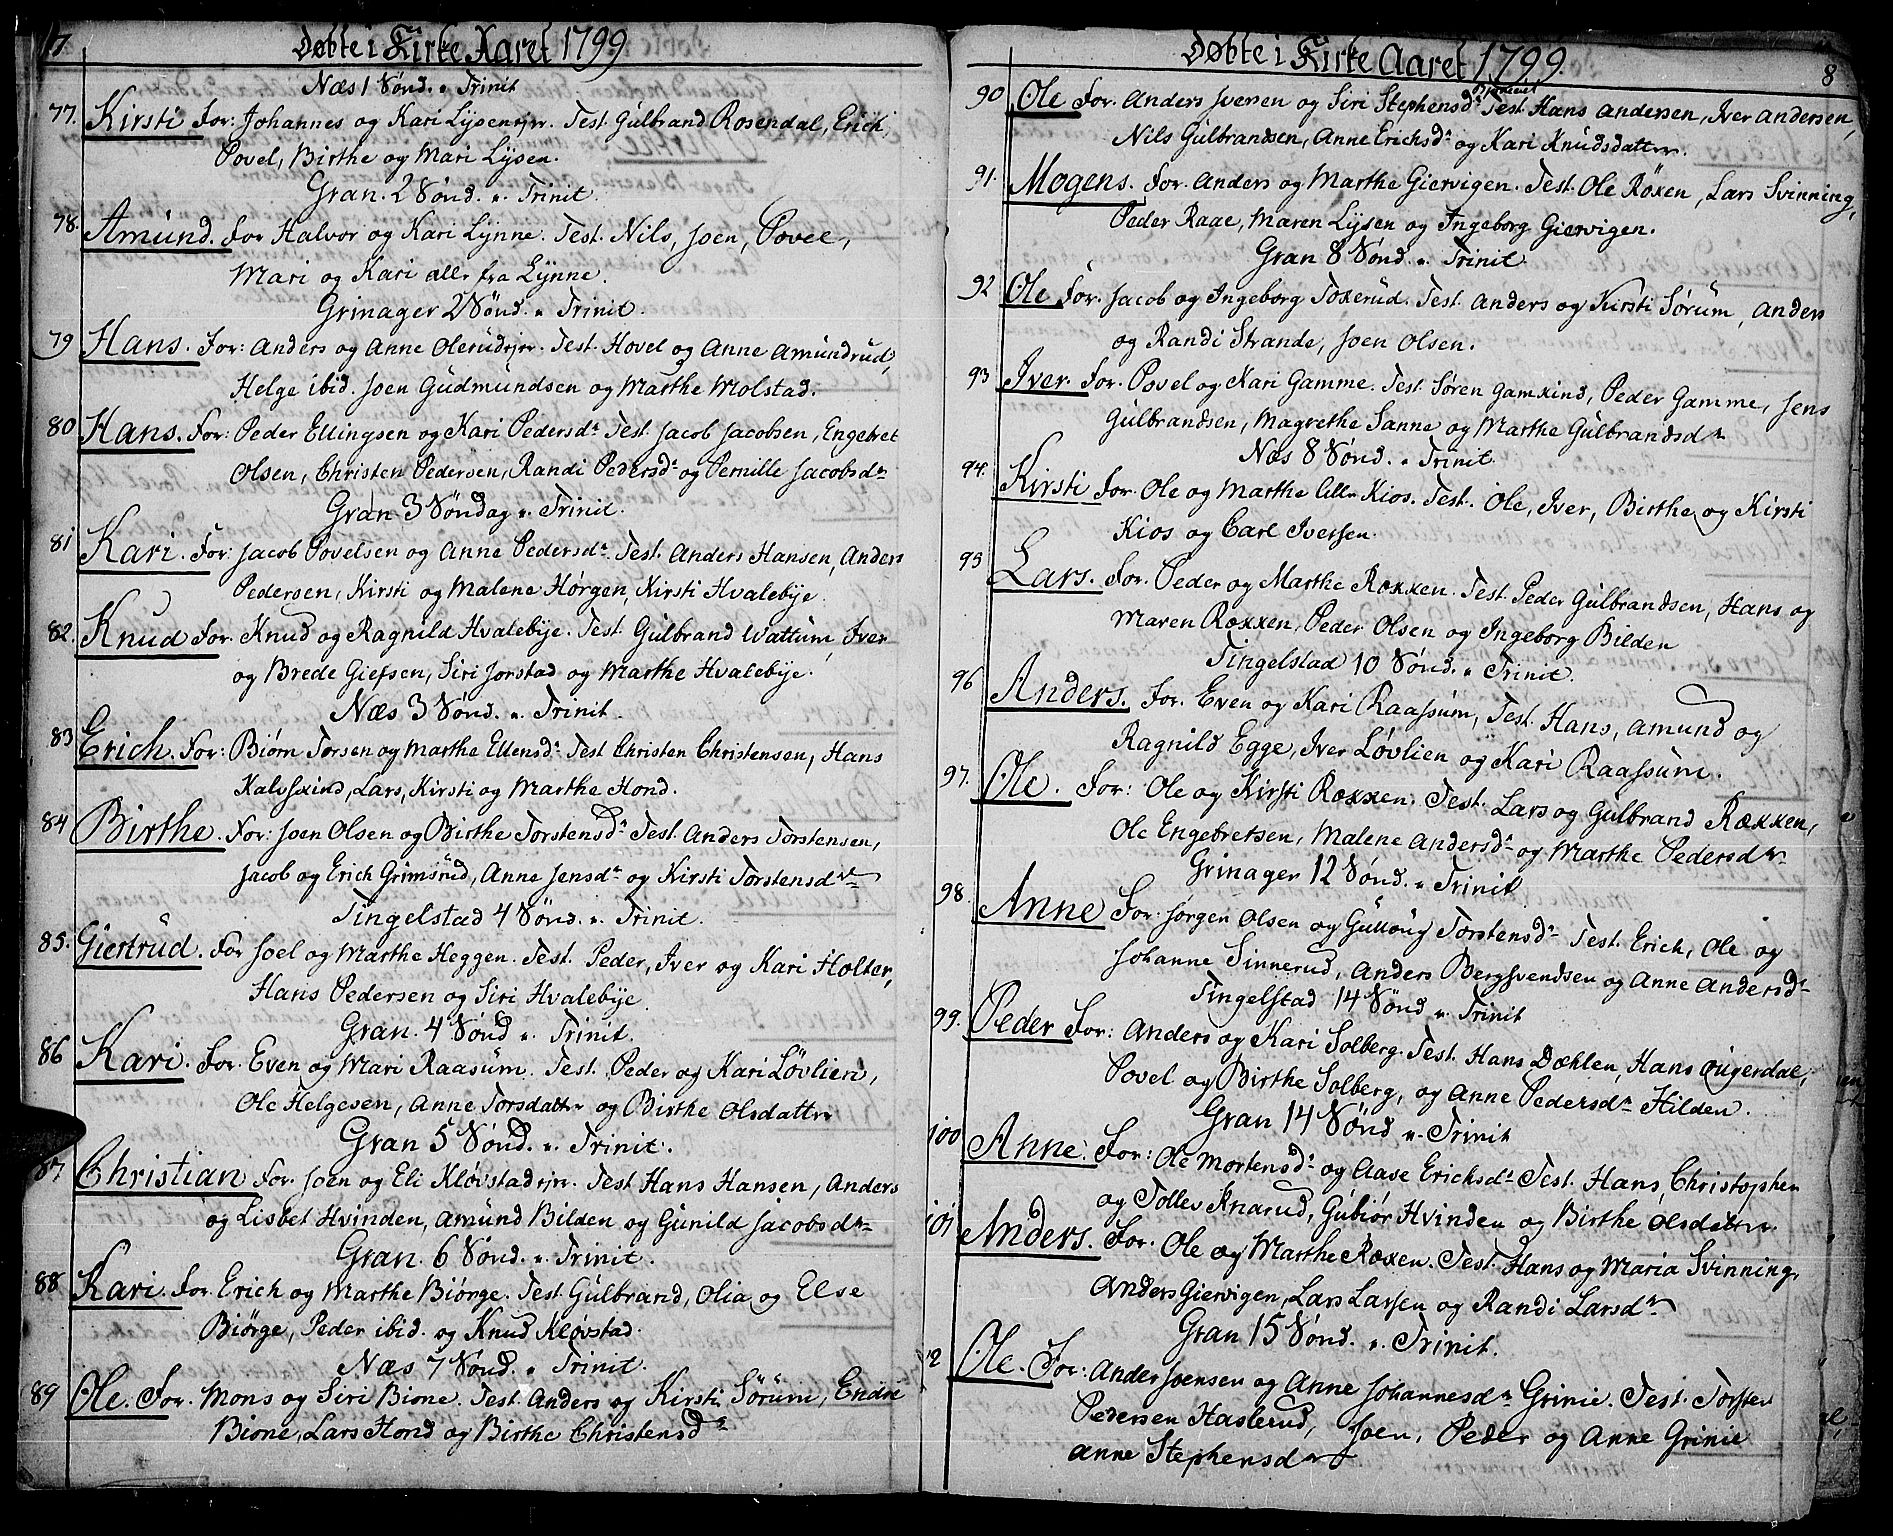 7.
Døbte i Kirke Aaret 1799
Næs 1 Sønd. " Trinit
77. Kirsti For: Johannes og Kari Lysenejer. Test. Gulbrand Rosendal, Erich,
Povel, Birthe og Mari Lysen.
Gran. 2 Sønd. " Trinit.
78. Amund. For Halvor og Kari Lynne. Test. Nils, Joen, Povel,
Mari og Kari alle fra Lynne.
Grinager 2 Sønd. " Trinit.
79 Hans. For: Anders og Anne Olerudejer. Test. Hovel og Anne Amundrud,
Helge ibid. Joen Gudmundsen og Marthe Molstad.
80 Hans. For: Peder Ellingsen og Kari Pedersdr Test. Jacob Jacobsen, Engebret
Olsen, Christen Pedersen, Randi Pedersdr og Pernille Jacobsdr
Gran 3 Søndag " Trinit.
81 Kari. For: Jacob Povelsen og Anne Pedersdr. Test. Anders Hansen, Anders
Pedersen, Kirsti og Malene Hørgen, Kirsti Hvalebye.
82. Knud For. Knud og Ragnild Hvalebye. Test. Gulbrand Wattum, Iver
og Brede Giefsen, Siri Jorstad og Marthe Hvalebye.
Næs 3 Sønd. " Trinit.
83 Erich. For: Biørn Torsen og Marthe Ellensdr Test Christen Christensen, Hans
Kalvsxind, Lars, Kirsti og Marthe Hond.
84 Birthe. For: Joen Olsen og Birthe Torstensdr Test. Anders Torstensen,
Jacob og Erich Grimsrud, Anne Jensdr og Kirsti Torstensdr
Tingelstad 4 Sønd. " Trinit.
85. Giertrud. For Joel og Marthe Heggen. Test. Peder, Iver og Kari Holter,
Hans Pedersen og Siri Hvalebye.
Gran. 4 Sønd " Trinit.
86 Kari. For. Even og Mari Raasum. Test. Peder og Kari Løvlien,
Ole Helgesen, Anne Torsdatter og Birthe Olsdatter
Gran 5 Sønd. " Trinit.
87 Christian For. Joen og Eli Kløvstadejer. Test Hans Hansen, Anders
og Lisbet Hvinden, Amund Bilden og Gunild Jacobsdr
Gran. 6 Sønd. " Trinit.
88 Kari. For. Erich og Marthe Biørge. Test. Gulbrand, Olia og Else
Biørge, Peder ibid. og Knud Kløvstad.
Næs 7 Sønd. " Trinit.
89 Ole. For. Mons og Siri Bione. Test. Anders og Kirsti Sørum, Endre
Bione, Lars Hond og Birthe Christensdr
Døbte i Kirke Aaret 1799.
8
90 Ole For. Anders Iversen og Siri Stephensdr Test. Hans Andersen, Iver Andersen,
Nils Gulbrandsen, Anne Erichsdr og Kari Knudsdatter.
91. Mogens. For. Anders og Marthe Giervigen. Test. Ole Røxen, Lars Svinning,
Peder Raae, Maren Lysen og Ingeborg Giervigen.
Gran 8 Sønd. " Trinit
92 Ole For. Jacob og Ingeborg Toxerud. Test. Anders og Kirsti Sørum, Anders
og Randi Strande, Joen Olsen.
93 Iver. For. Povel og Kari Gamme. Test. Søren Gamxind, Peder Gamme, Jens
Gulbrandsen, Magrethe Sanne og Marthe Gulbrandsdr
Næs 8 Sønd. " Trinit.
94. Kirsti For. Ole og Marthe Kios. Test. Ole, Iver, Birthe og Kirsti
Kios og Carl Iversen.
95 Lars. For. Peder og Marthe Roxxen. Test. Peder Gulbrandsen, Hans og
Maren Roxxen, Peder Olsen og Ingeborg Bilden
Tingelstad 10 Sønd. " Trinit.
96 Anders. For. Even og Kari Raassum, Test. Hans, Amund og
Ragnild Egge, Iver Løvlien og Kari Raassum.
97. Ole. For: Ole og Kirsti Roxxen. Test. Lars og Gulbrand Ræxxen,
Ole Engebretsen, Malene Andersdr og Marthe Pedersdr
Grinager 12 Sønd. " Trinit
98. Anne For. Jørgen Olsen og Gullaug Torstensdr Test. Erich, Ole og
Johanne Sinnerud, Anders Bergsvendsen og Anne Andersdr
Tingelstad 14 Sønd " Trinit
99. Peder For: Anders og Kari Solberg. Test. Hans Dæhlen, Hans Øigerdal,
Povel og Birthe Solberg, og Anne Pedersdr Hilden.
Gran 14 Sønd " Trinit
100 Anne. For: Ole Mortensdr og Aase Erichsdr Test. Hans, Christopher
og Tollev Knarud, Gubiør Hvinden og Birthe Olsdatter.
101 Anders. For. Ole og Marthe Roxen. Test. Hans og Maria Svinning,
Anders Giervigen, Lars Larsen og Randi Larsdr
Gran 15 Sønd. " Trinit.
2 Ole. For: Ander Joensen og Anne Johannesdr Grinie. Test. Torsten
Pedersen Haslerud, Joen, Peder og Anne Grinie
Anne Stephensdr